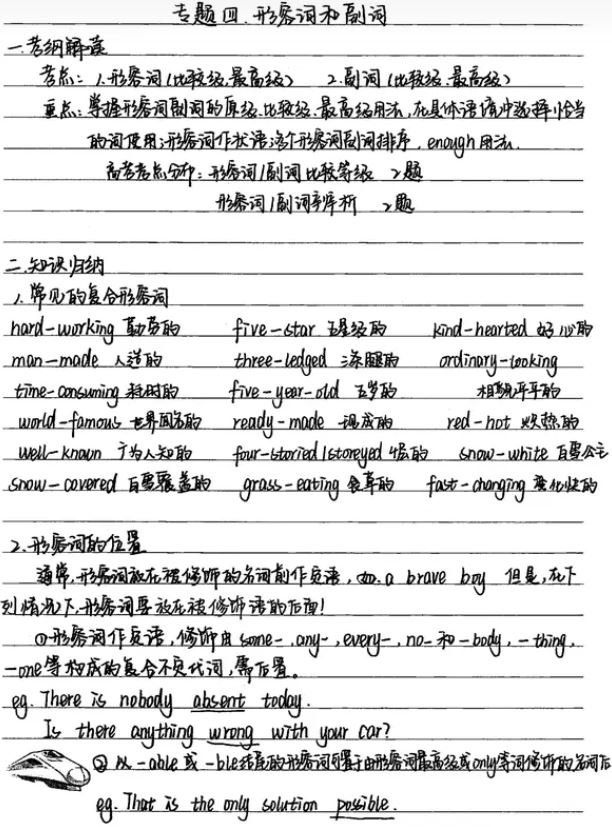 专题四.形容词和副词
一.考纲解读
考点: 1.形容词(比较级.最高级) 2.副词(比较级.最高级)
重点:掌握形容词副词的原级.比较级.最高级用法,在具体语境中选择恰当
的词使用;形容词作状语;多个形容词副词排序,enough用法.
高考考点分布:形容词/副词比较等级 2题
形容词/副词辨析 2题
二.知识归纳
1.常见的复合形容词
hard-working 勤劳的 five-star 五星级的 kind-hearted 好心的
man-made 人造的 three-ledged 三条腿的 ordinary-looking
time-consuming 耗时的 five-year-old 五岁的 相貌平平的
world-famous 世界闻名的 ready-made 现成的 red-hot 炽热的
well-known 广为人知的 four-storied/storeyed 4层的 snow-white 白雪公主
snow-covered 白雪覆盖的 grass-eating 食草的 fast-changing 变化快的
2.形容词的位置
通常,形容词放在被修饰的名词前作定语,如.a brave boy 但是,在下
列情况下,形容词要放在被修饰语的后面!
①形容词作定语,修饰由some-,any-,every-,no-和-body,-thing,
-one等构成的复合不定代词,需后置。
eg. There is nobody absent today.
Is there anything wrong with your car?
②以-able或-ble结尾的形容词可置于由形容词最高级或only等词修饰的名词后
eg. That is the only solution possible.